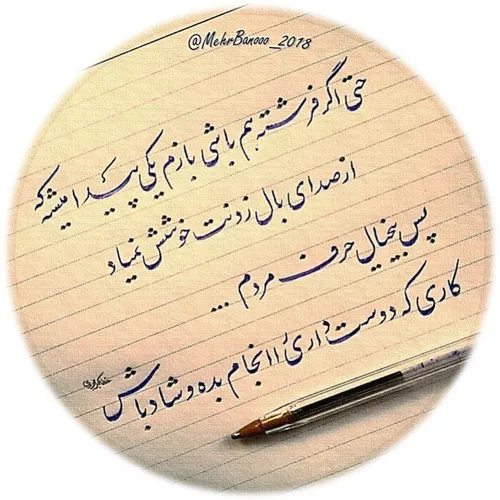 @MehrBanooo_2018
حتی اگر فرشته هم باشی بازم یکی پیدا میشه که
از صدای بال زدنت خوشش نمیاد
پس بیخیال حرف مردم ...
کاری که دوست داری انجام بده و شاد باش